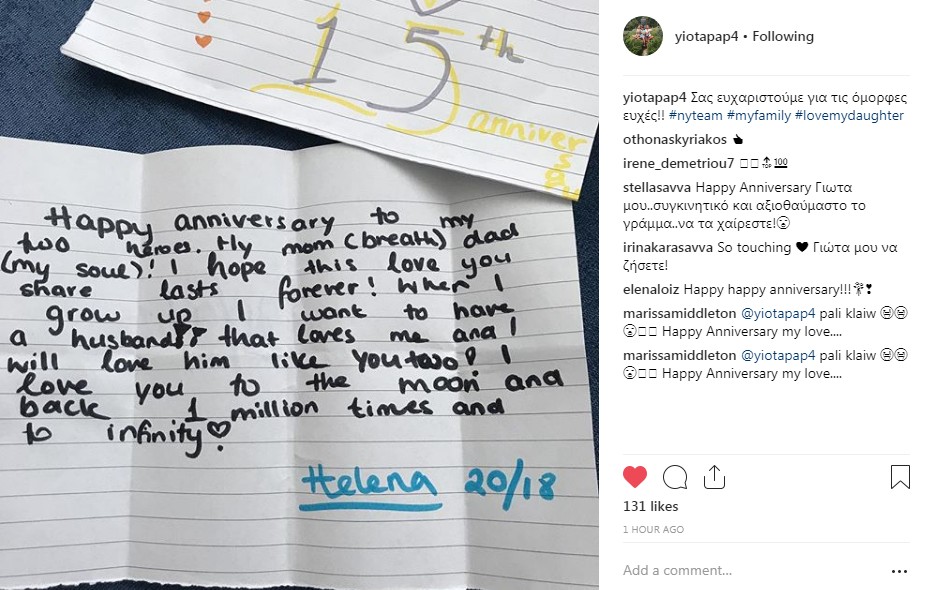 15th
annivers
Happy anniversary to my
two heroes. My mom (breath) dad
(my soul)! I hope this love you
share lasts forever! When I
grow up I want to have
a husband that loves me and I
will love him like you two! I
love you to the moon and
back 1 million times and
to infinity♡!
Helena 20/18
yiotapap4 • Following
yiotapap4 Σας ευχαριστούμε για τις όμορφες
ευχές!! #nyteam #myfamily #lovemydaughter
othonaskyriakos
irene_demetriou7 💯
stellasavva Happy Anniversary Γιωτα
μου..συγκινητικό και αξιοθαύμαστο το
γράμμα..να τα χαίρεστε!
irinakarasavva So touching ❤ Γιώτα μου να
ζήσετε!
elenaloiz Happy happy anniversary!!!
marissamiddleton @yiotapap4 pali klaiw
Happy Anniversary my love....
marissamiddleton @yiotapap4 pali klaiw
Happy Anniversary my love....
131 likes
1 HOUR AGO
Add a comment...